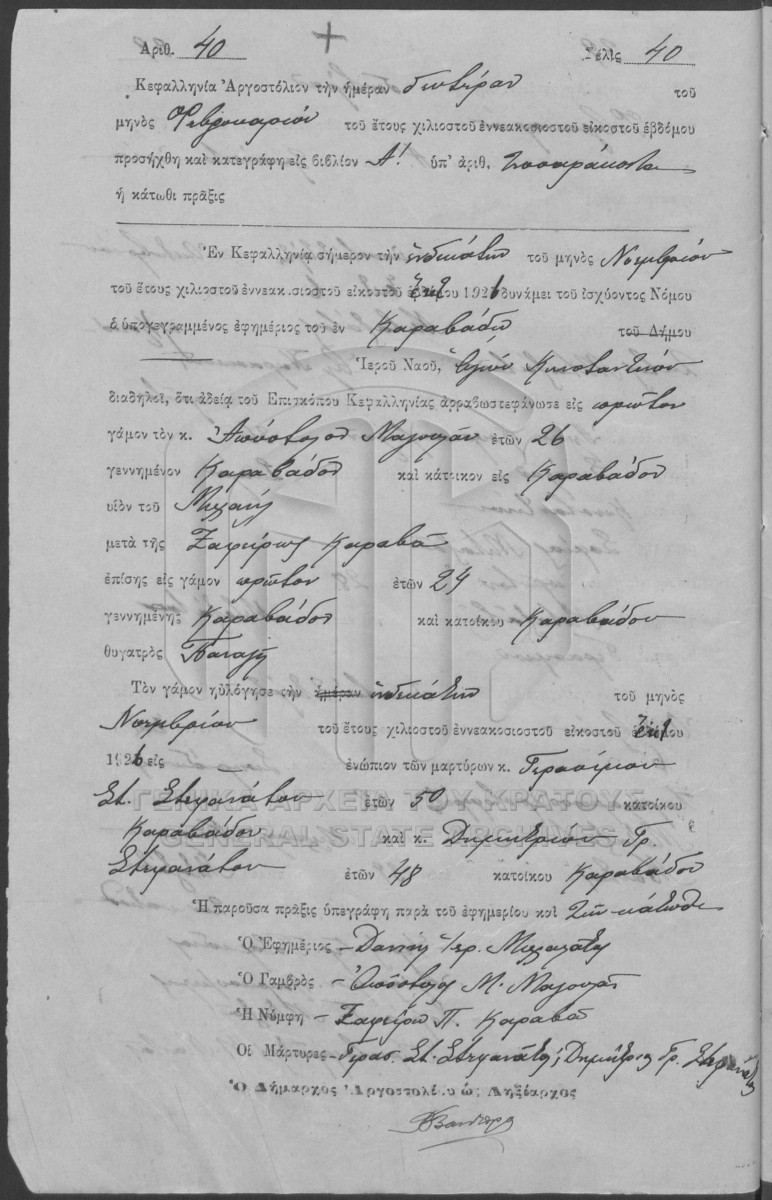 Ἀριθ. 40 Σελὶς 40
Κεφαλληνία Ἀργοστόλιον τὴν ἡμέραν δευτέραν τοῦ
μηνὸς Φεβρουαρίου τοῦ ἔτους χιλιοστοῦ ἐννεακοσιοστοῦ εἰκοστοῦ ἑβδόμου
προσήχθη καὶ κατεγράφη εἰς βιβλίον Α! ὑπ' ἀριθ. τεσσαράκοντα
ἡ κάτωθι πρᾶξις
Ἐν Κεφαλληνίᾳ σήμερον τὴν ἑνδεκάτην τοῦ μηνὸς Νοεμβρίου
τοῦ ἔτους χιλιοστοῦ ἐννεακοσιοστοῦ εἰκοστοῦ 1926 δυνάμει τοῦ ἰσχύοντος Νόμου
ὁ ὑπογεγραμμένος ἐφημέριος τοῦ ἐν Καραβάδῳ τοῦ Δήμου
Ἱεροῦ Ναοῦ, Ἁγίου Κωνσταντίνου
διαδηλοῖ, ὅτι ἀδείᾳ τοῦ Ἐπισκόπου Κεφαλληνίας ἀρραβωστεφάνωσε εἰς πρῶτον
γάμον τὸν κ. Ἀπόστολον Μαγουλᾶν ἐτῶν 26
γεννημένον Καραβάδον καὶ κάτοικον εἰς Καραβάδον
υἱὸν τοῦ Μιχαήλ
μετὰ τῆς Ζαφείρως Καραβᾶ
ἐπίσης εἰς γάμον πρῶτον ἐτῶν 24
γεννημένης Καραβάδον καὶ κατοίκου Καραβάδου
θυγατρὸς Παναγῆ
Τὸν γάμον ηὐλόγησε τὴν ἡμέραν ἑνδεκάτην τοῦ μηνὸς
Νοεμβρίου τοῦ ἔτους χιλιοστοῦ ἐννεακοσιοστοῦ εἰκοστοῦ
1926 εἰς ἐνώπιον τῶν μαρτύρων κ. Γερασίμου
Στ. Στεφανάτου ἐτῶν 50 κατοίκου
ΓΕΝΙΚΑ ΑΡΧΕΙΑ ΤΟΥ ΚΡΑΤΟΥΣ
Καραβάδου καὶ κ. Δημητρίου Γρ.
GENERAL STATE ARCHIVES
Στεφανάτου ἐτῶν 48 κατοίκου Καραβάδου
Ἡ παροῦσα πρᾶξις ὑπεγράφη παρὰ τοῦ ἐφημερίου καὶ τῶν κάτωθι
Ὁ Ἐφημέριος - ἱερ.
Ὁ Γαμβρὸς - Ἀπόστολος Μ. Μαγουλᾶς
Ἡ Νύμφη - Ζαφείρω Π. Καραβᾶ
Οἱ Μάρτυρες - Γερασ. Στ. Στεφανάτος, Δημήτριος Γρ. Στεφανάτος
Ὁ Δήμαρχος Ἀργοστολίου ὡς Ληξίαρχος